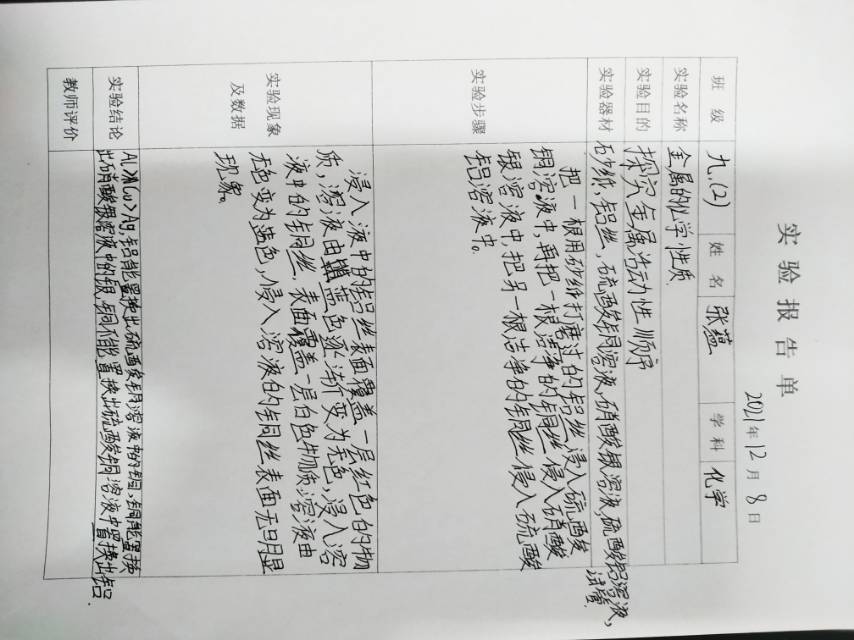 实验报告单
2021年12月8日
班级 九.(2) 姓名 张蕴 学科 化学
实验名称 金属的化学性质
实验目的 探究金属活动性顺序
实验器材 砂纸,铝丝,硫酸铜溶液,硝酸银溶液,硫酸铝溶液,
试管
实验步骤
把一根用砂纸打磨过的铝丝浸入硫酸
铜溶液中,再把一根洁净的铜丝侵入硝酸
银溶液中把另一根洁净的铜丝侵入硫酸
铝溶液中。
实验现象
及数据
浸入液中的铝丝表面覆盖一层红色的物
质,溶液由蓝色逐渐变为无色,浸入溶
液中的铜丝,表面覆盖一层白色物质,溶液由
无色变为蓝色,侵入溶液的铜丝表面无明显
现象。
实验结论
Al>Cu>Ag,铝能置换出硫酸铜溶液中的铜,铜能置换
出硝酸银溶液中的银,铜不能置换出硫酸铜溶液中置换出铝.
教师评价